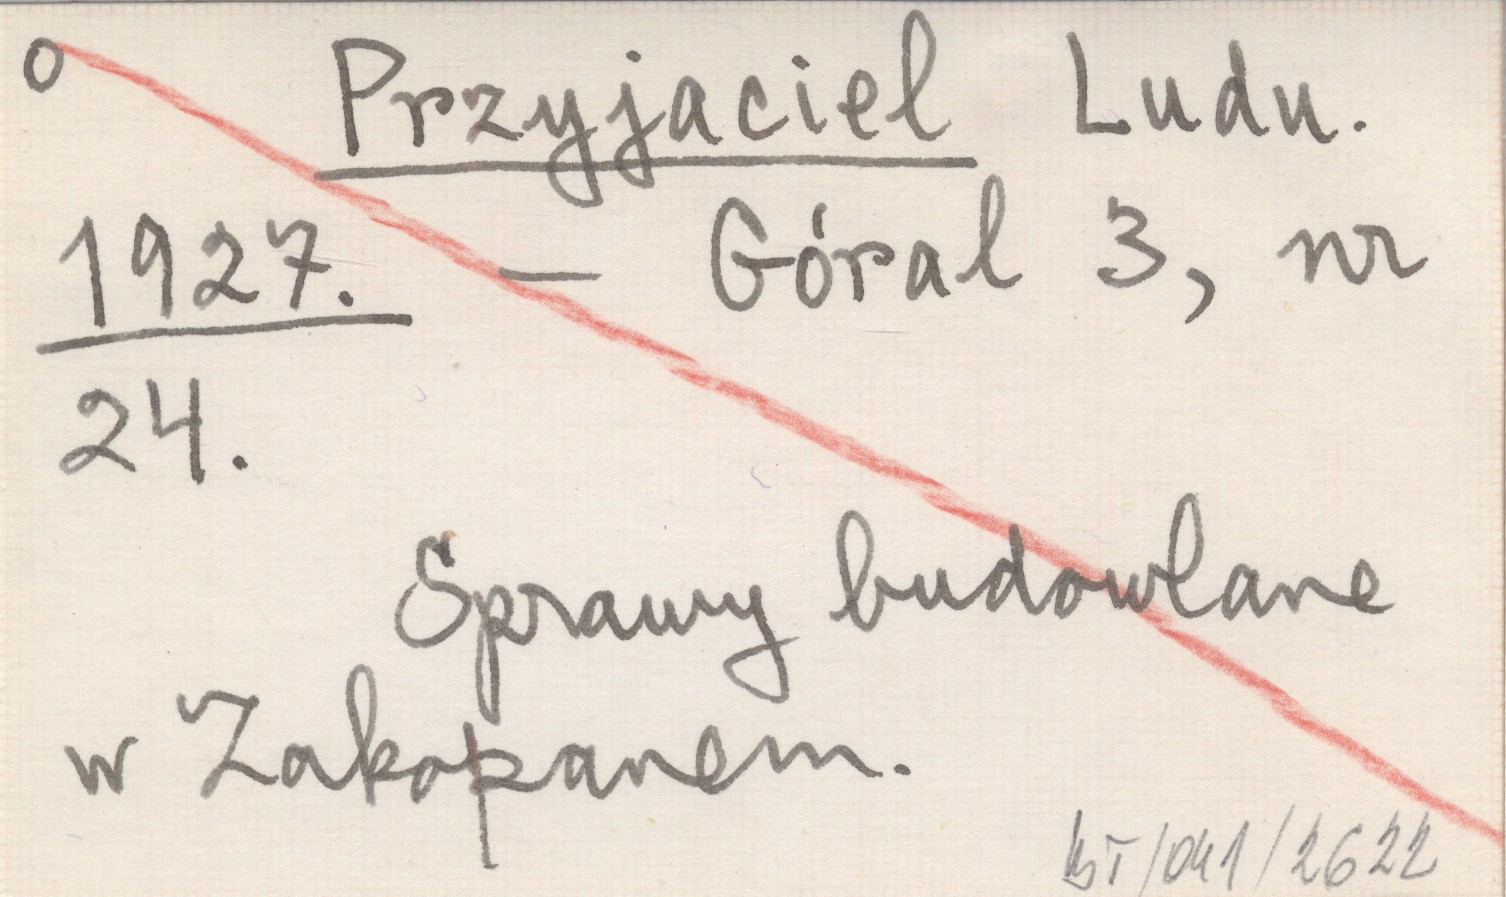 o Przyjaciel Ludu.
1927. — Góral 3, nr
24.
Sprawy budowlane
w Zakopanem.
/041/2622